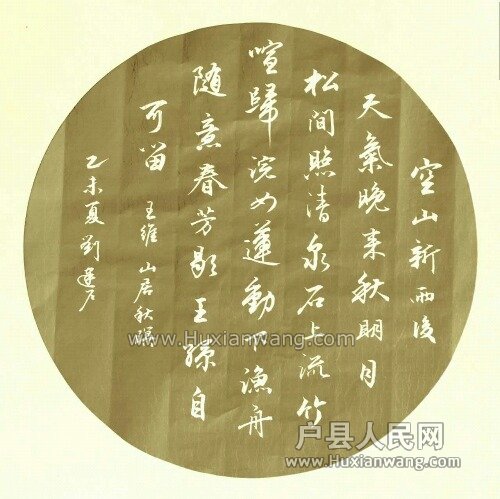 空山新雨後
天氣晚来秋明月
松間照清泉石上流竹
喧歸浣女蓮動下漁舟
随意春芳歇王孫自
可留
王維 山居秋暝
乙未夏劉
www.Huxianwang.com
户县人民网
www.Huxianwang.com